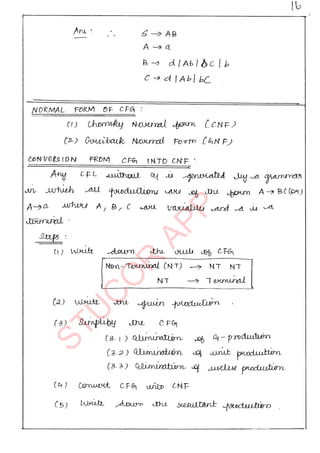 16
Ans : ∴ S → AB
A → a
B → d | Ab | bC | b
C → d | Ab | bC
NORMAL FORM OF CFG :
(1) Chomsky Normal form (CNF)
(2) Greiback Normal Form (GNF)
CONVERSION FROM CFG INTO CNF :
Any CFL without ε is generated by a grammar
in which all productions are of the form A → BC (or)
A → a where A, B, C are variables and a is a
terminal.
Steps :
(1) Write down the rule of CFG
Non-Terminal (NT) → NT NT
NT → Terminal
(2) Write the given production .
(3) Simplify the CFG
(3.1) Elimination of ε-production
(3.2) Elimination of unit production
(3.3) Elimination of useless production
(4) Convert CFG into CNF
(5) Write down the resultant productions .
STUCOR APP